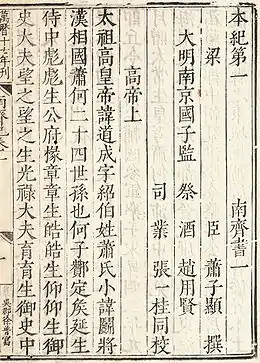 本紀第一
南齊書一
梁
臣蕭子顯
撰
大明南京國子監
祭酒趙用賢
司業張一桂同校
高帝上
太祖高皇帝諱道成字紹伯姓蕭氏小諱鬬將
漢相國蕭何二十四世孫也何子酇定矦延生
侍中彪彪生公府掾章章生皓皓生仰仰生御
史大夫望之望之生光祿大夫育育生御史中
萬曆十六年刊